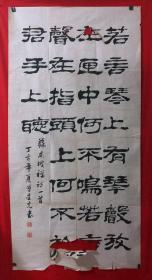 若言琴上有琴聲放
在匣中何不鳴若言
聲在指頭上何不於
君手上聽
蘇東坡詩一首
丁亥年夏書